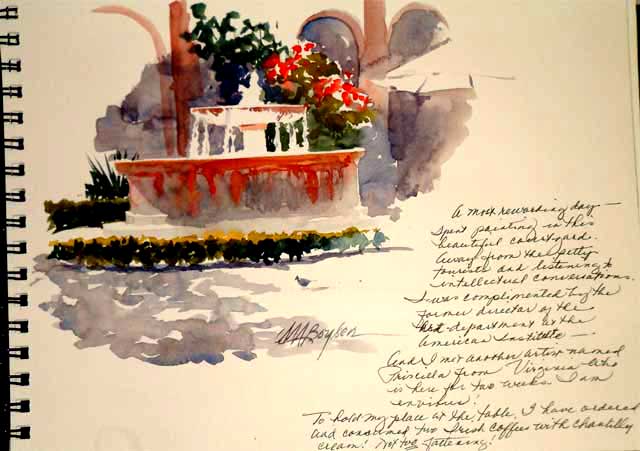 A most rewarding day —
spent painting in this
beautiful courtyard.
Away from the petty
tourists and listening to
intellectual conversations.
I was complimented by the
former director of the
art department at the
American Institute —
And I met another artist named
Priscilla from Virginia who
is here for two weeks. I am
envious!
To hold my place at the table, I have ordered
and consumed two Irish coffees with chantilly
cream! Not too fattening!
SMBoylen